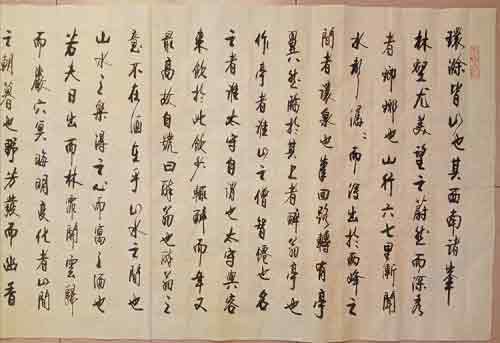 環滁皆山也其西南諸峯
林壑尤美望之蔚然而深秀
者瑯琊也山行六七里漸聞
水聲潺〻而瀉出於兩峰之
間者釀泉也峯回路轉有亭
翼然臨於其上者醉翁亭也
作亭者誰山之僧智僊也名
之者誰太守自謂也太守與客
來飲於此飲少輒醉而年又
最高故自號曰醉翁也醉翁之
意不在酒在乎山水之間也
山水之樂得之心而寓之酒也
若夫日出而林霏開雲歸
而巖穴冥晦明變化者山間
之朝暮也野芳發而幽香